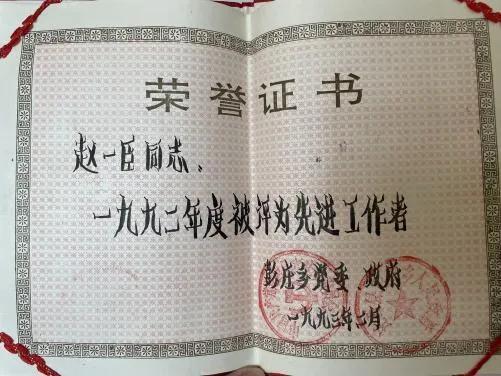 荣誉证书
赵一臣同志:
一九九二年度被评为先进工作者
彭庄乡党委 政府
一九九三年二月